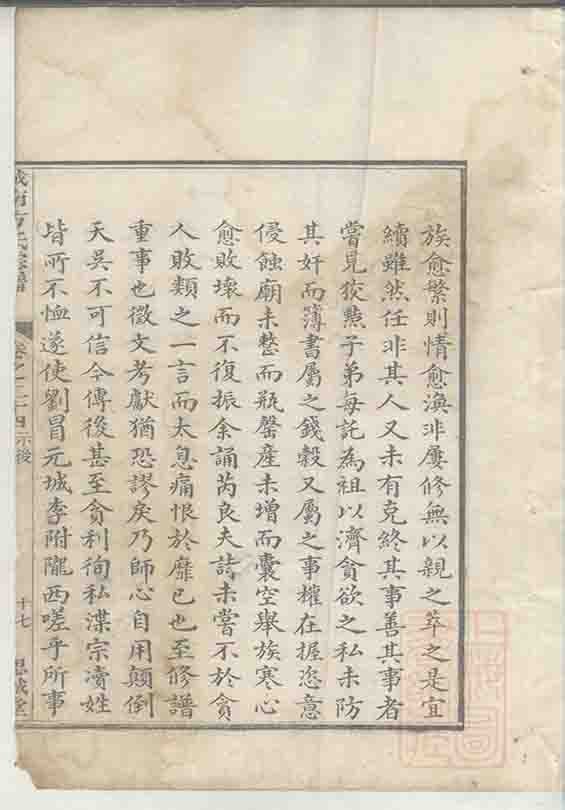 族愈繁則情愈渙非屢修無以親之萃之是宜
續雖然任非其人又未有克終其事善其事者
嘗見狡黠子弟每託為祖以濟貪欲之私未防
其奸而簿書屬之錢穀又屬之事權在握恣意
侵蝕廟未整而瓶罄產未增而囊空舉族寒心
愈敗壞而不復振余誦芮良夫詩未嘗不於貪
人敗類之一言而太息痛恨於靡已也至修譜
重事也徵文考獻猶恐謬戾乃師心自用顛倒
天吳不可信今傳後甚至貪利徇私渫宗瀆姓
皆所不恤遂使劉冒元城李附隴西嗟乎所事
城南方氏宗譜
卷之二十四示後
十七
思誠堂